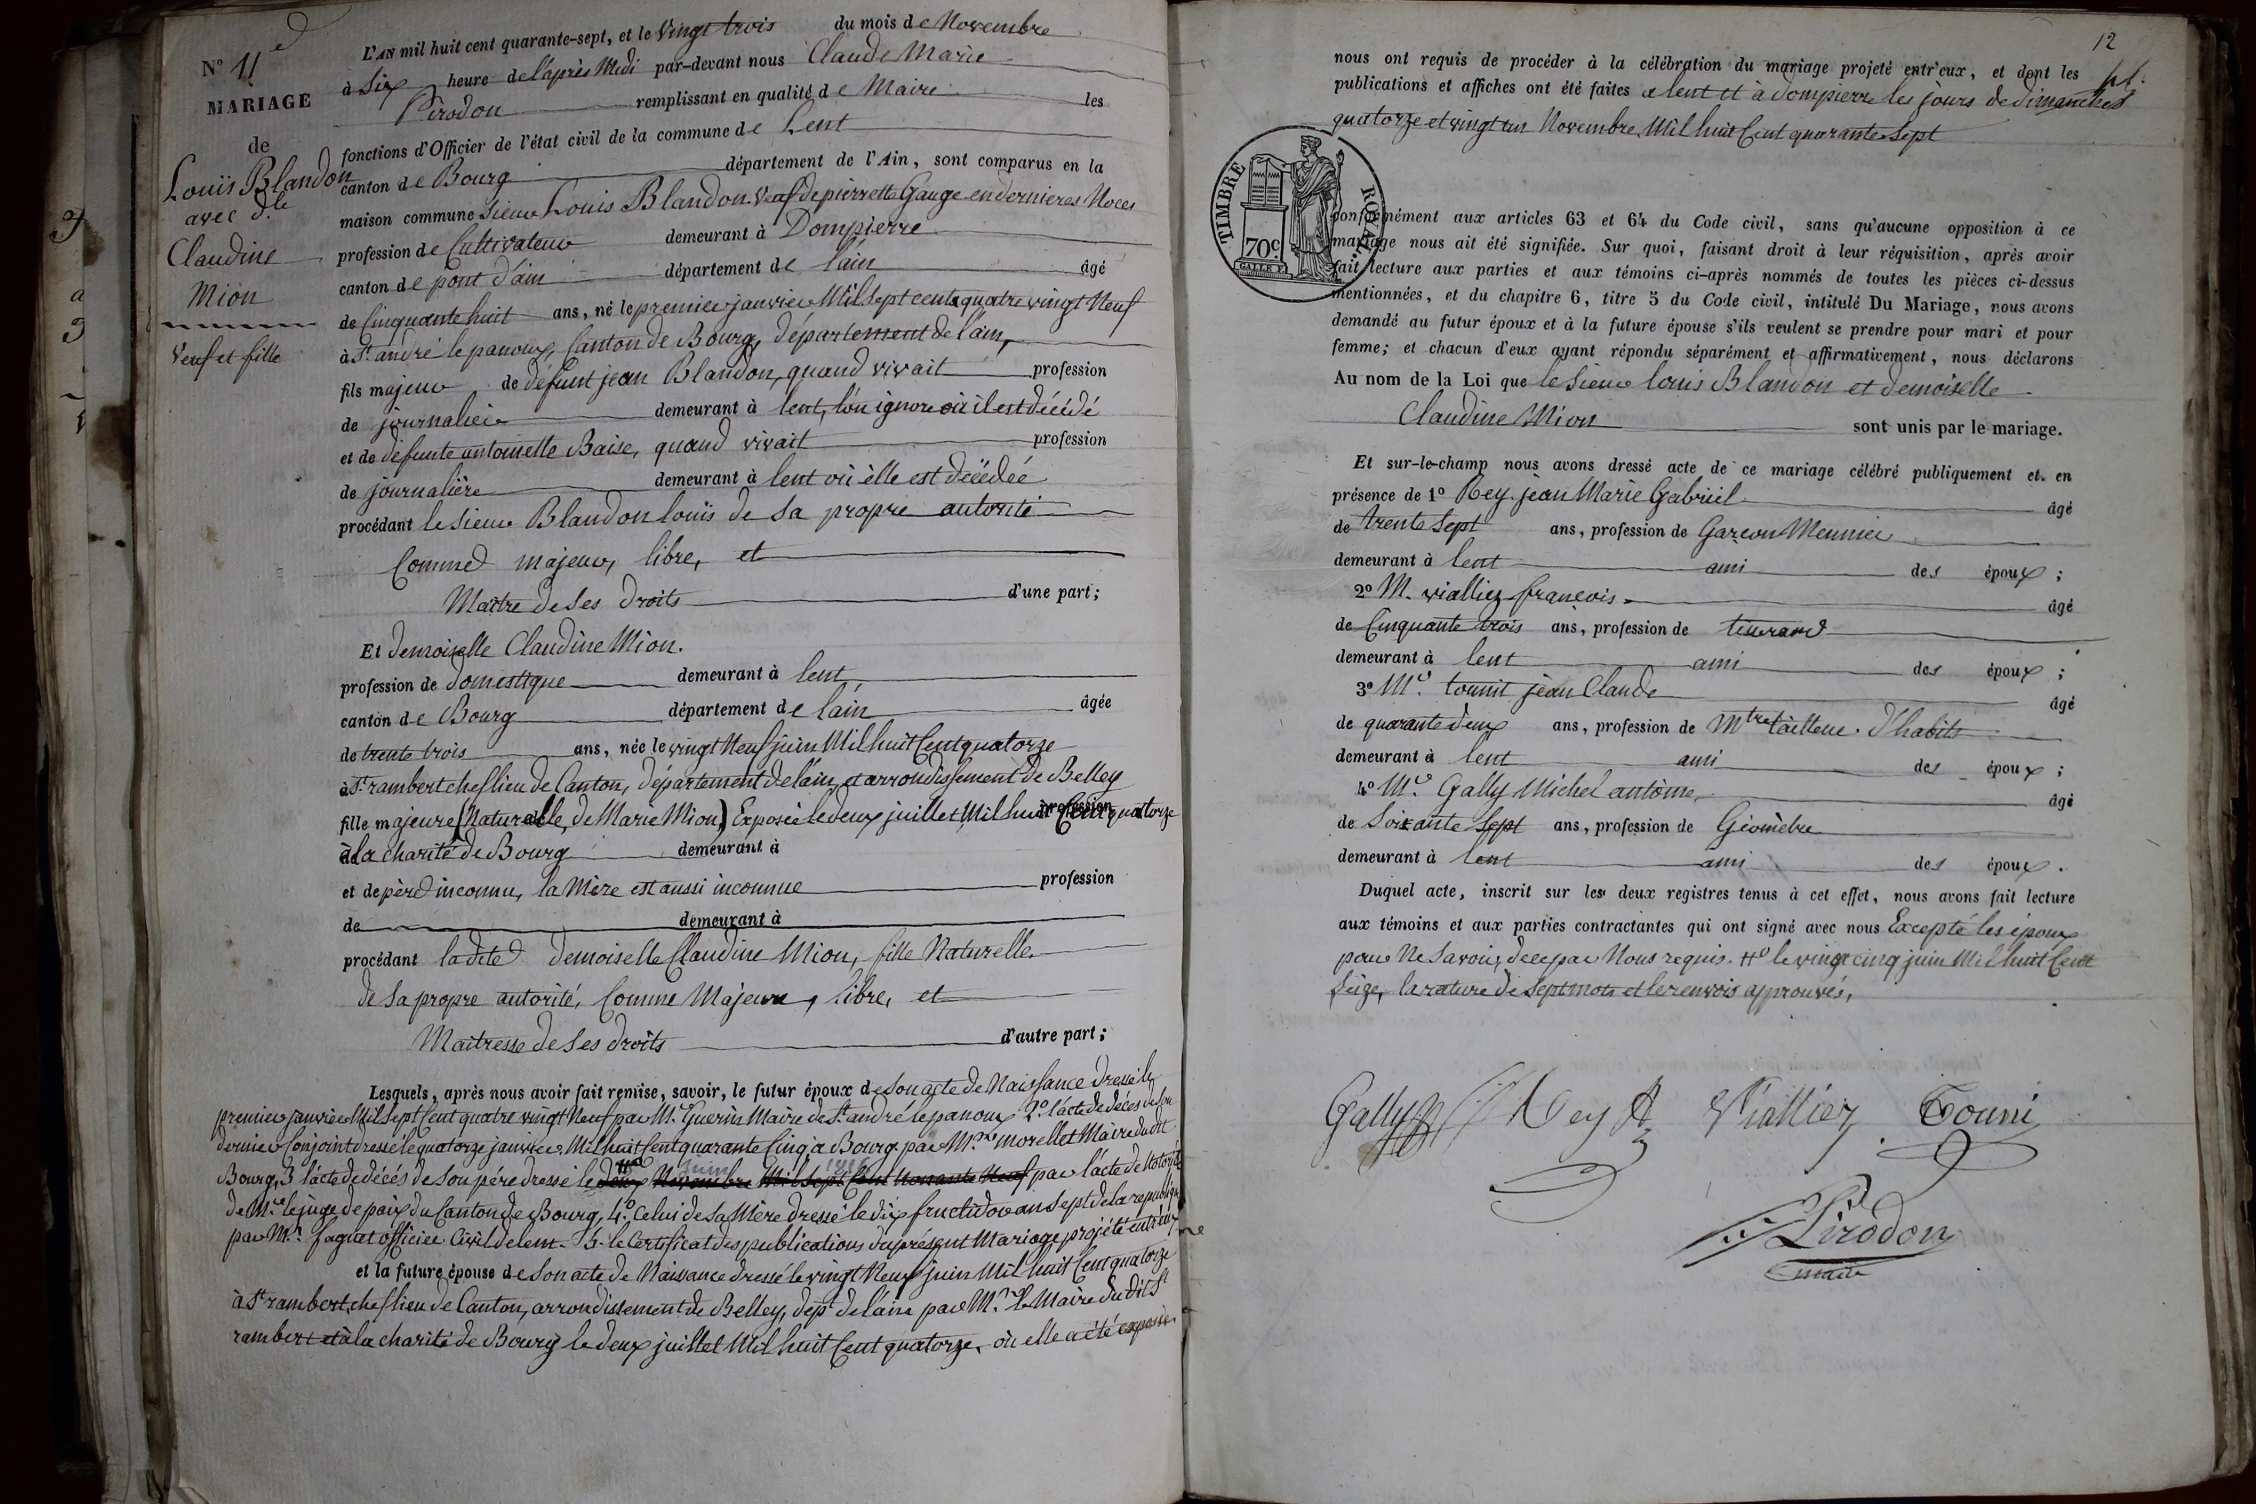 N° 11e
MARIAGE
de
Louis Blandon
avec d.lle
Claudine
Mion
Veuf et fille
L'AN mil huit cent quarante-sept, et le vingt trois du mois de Novembre
à Six heure de l'après Midi par-devant nous Claude Marie
Pirodon remplissant en qualité de Maire les
fonctions d'Officier de l'état civil de la commune de Lent
canton de Bourg département de l'Ain, sont comparus en la
maison commune Sieur Louis Blandon Veuf de pierrette Gauge en dernieres Noces
profession de Cultivateur demeurant à Dompierre
canton de pont d'ain département de l'ain âgé
de Cinquante huit ans, né le premier janvier Mil Sept cent quatre vingt Neuf
à St. andré le panoux, Canton de Bourg, département de l'ain,
fils majeur de défunt jean Blandon, quand vivait profession
de journalier demeurant à lent, l'on ignore où il est décédé
et de défunte antoinette Baise, quand vivait profession
de journalière demeurant à lent où elle est décédeé
procédant le Sieur Blandon louis de sa propre autorité
Comme majeur, libre, et
Maitre de Ses droits d'une part;
Et demoiselle Claudine Mion.
profession de domestique demeurant à lent
canton de Bourg département de l'ain âgée
de trente trois ans, née le vingt Neuf juin Mil huit Cent quatorze
à St. rambert chef lieu de Canton, département de l'ain, et arrondissement de Belley
fille majeure (Naturelle, de Marie Mion) Exposée le deux juillet Mil huit Cent quatorze profession
à la charité de Bourg demeurant à
et de père inconnu, la Mère est aussi inconnue profession
de demeurant à
procédant la dite demoiselle Claudine Mion, fille Naturelle.
de sa propre autorité, Comme Majeure, libre, et
Maitresse de Ses droits d'autre part;
Lesquels, après nous avoir fait remise, savoir, le futur époux de Son acte de Naissance dressé le
premier janvier Mil Sept Cent quatre vingt Neuf par Mr. Guerin Maire de St. andré le panoux 2° l'acte de décès de Son
dernier Conjoint dressé le quatorze janvier Mil huit Cent quarante Cinq à Bourg par Mr. morellet Maire dudit
Bourg, 3 l'acte de décès de Son père dressé le deux Novembre Mil Sept Cent Nonante Neuf par l'acte de Notorieté
de Mr. le juge de paix du Canton de Bourg, 4° Celui de Sa Mère dressé le dix fructidor an Sept de la republique
par Mr. faguet officier Civil de lent. 5° le Certificat des publications du présent Mariage projeté entr'eux
et la future épouse de Son acte de Naissance dressé le vingt Neuf juin Mil huit Cent quatorze
à St. rambert, chef lieu de Canton, arrondissement de Belley, dept de l'ain par Mr. le Maire dudit St
rambert et à la charité de Bourg le deux juillet Mil huit Cent quatorze, où elle a été exposée.
12
nous ont requis de procéder à la célébration du mariage projeté entr'eux, et dont les
publications et affiches ont été faites a lent et à dompierre les jours de dimanches
quatorze et vingt un Novembre Mil huit Cent quarante Sept
TIMBRE ROYAL
70c.
conformément aux articles 63 et 64 du Code civil, sans qu'aucune opposition à ce
mariage nous ait été signifiée. Sur quoi, faisant droit à leur réquisition, après avoir
fait lecture aux parties et aux témoins ci-après nommés de toutes les pièces ci-dessus
mentionnées, et du chapitre 6, titre 5 du Code civil, intitulé Du Mariage, nous avons
demandé au futur époux et à la future épouse s'ils veulent se prendre pour mari et pour
femme; et chacun d'eux ayant répondu séparément et affirmativement, nous déclarons
Au nom de la Loi que le Sieur louis Blandon et demoiselle
Claudine Mion sont unis par le mariage.
Et sur-le-champ nous avons dressé acte de ce mariage célébré publiquement et en
présence de 1° Rey jean Marie Gabriel âgé
de trente Sept ans, profession de Garçon Meunier
demeurant à lent ami des époux;
2° M. vialliez françois âgé
de Cinquante trois ans, profession de tisserand
demeurant à lent ami des époux;
3° Mr. tounit jean Claude âgé
de quarante deux ans, profession de Mtre tailleur d'habits
demeurant à lent ami des époux;
4° Mr. Gally Michel antoine, âgé
de Soixante Sept ans, profession de Géomètre
demeurant à lent ami des époux.
Duquel acte, inscrit sur les deux registres tenus à cet effet, nous avons fait lecture
aux témoins et aux parties contractantes qui ont signé avec nous Excepté les époux
pour Ne Savoir, de ce par Nous requis. # le vingt cinq juin Mil huit Cent
Seize, la rature de Sept mots et le renvois approuvés,
Gally Rey Viallier Touni
Pirodon
maire